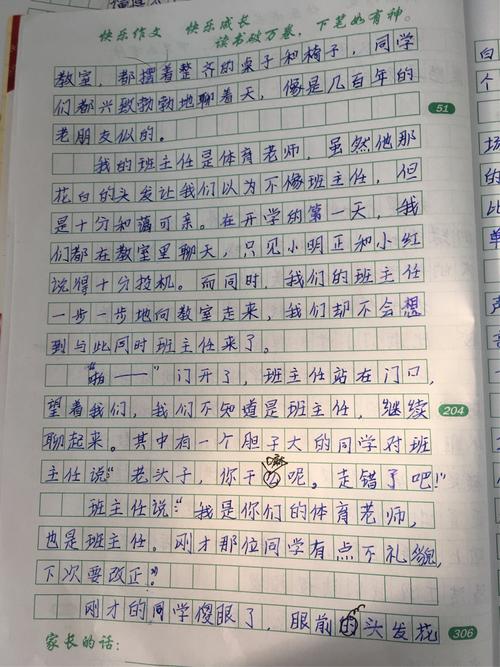 快乐作文 快乐成长 读书破万卷,下笔如有神。
教室,都摆着整齐的桌子和椅子,同学
们都兴致勃勃地聊着天,像是几百年的
51
老朋友似的。
我的班主任是体育老师,虽然他那
花白的头发让我们以为不像班主任,但
是十分和蔼可亲。在开学的第一天,我
们都在教室里聊天,只见小明正和小红
说得十分投机。而同时,我们的班主任
一步一步地向教室走来,我们却不会想
到与此同时班主任来了。
“啪——”门开了,班主任站在门口,
望着我们,我们不知道是班主任,继续
204
聊起来。其中有一个胆子大的同学对班
主任说:“老头子,你干嘛呢。走错了吧!”
班主任说:“我是你们的体育老师,
也是班主任。刚才那位同学有点不礼貌,
下次要改正!”
刚才的同学傻眼了,眼前的头发花
家长的话:
306